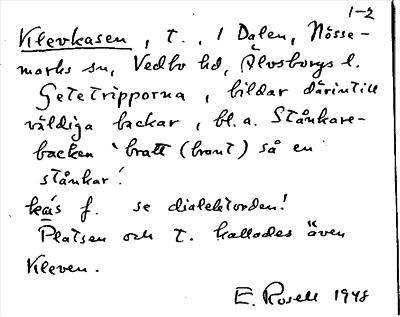 1-2
Klevkasen, t., i Dalen, Nösse-
marks sn, Vedbo hd, Älvsborgs l.
Getetripporna, bildar därintill
väldiga backar, bl.a. Stånkare-
backen 'bratt (brant) så en
stånkar'.
kás f. se dialektorden!
Platsen och t. kallades även
Kleven.
E. Rosell 1948